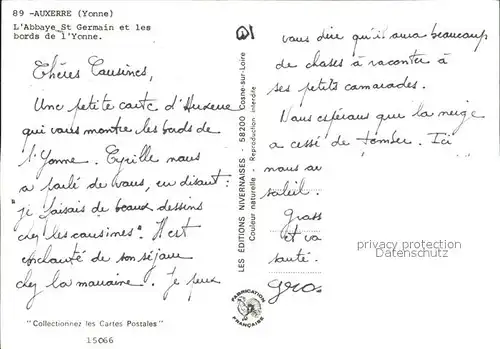 89 -AUXERRE (Yonne)
L'Abbaye St Germain et les
bords de l'Yonne.
Chères Cousines,
Une petite carte d'Auxerre
qui vous montre les bords de
l'Yonne. Cyrille nous
a parlé de vous, en disant :
"je faisais de beaux dessins
chez les cousines". Il est
enchanté de son séjour
chez la marraine. Je peux
"Collectionnez les Cartes Postales"
15066
LES ÉDITIONS NIVERNAISES - 58200 Cosne-sur-Loire
Couleur naturelle - Reproduction interdite
FABRICATION FRANÇAISE
vous dire qu'il aura beaucoup
de choses à raconter à
ses petits camarades.
Nous espérons que la neige
a cessé de tomber. Ici
nous av
soleil.
gross
et va
santé.
gros
privacy protected
Datenschutz